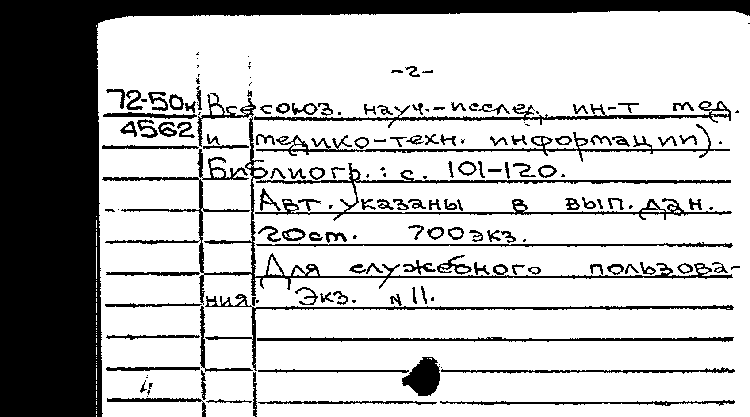 -2-
72-50н Всесоюз. науч.-исслед. ин-т мед.
4562 и медико-техн. информации).
Библиогр.: с. 101-120.
Авт. указаны в вып. дан.
20 cm. 700 экз.
Для служебного пользова-
ния. Экз. N 11.
4